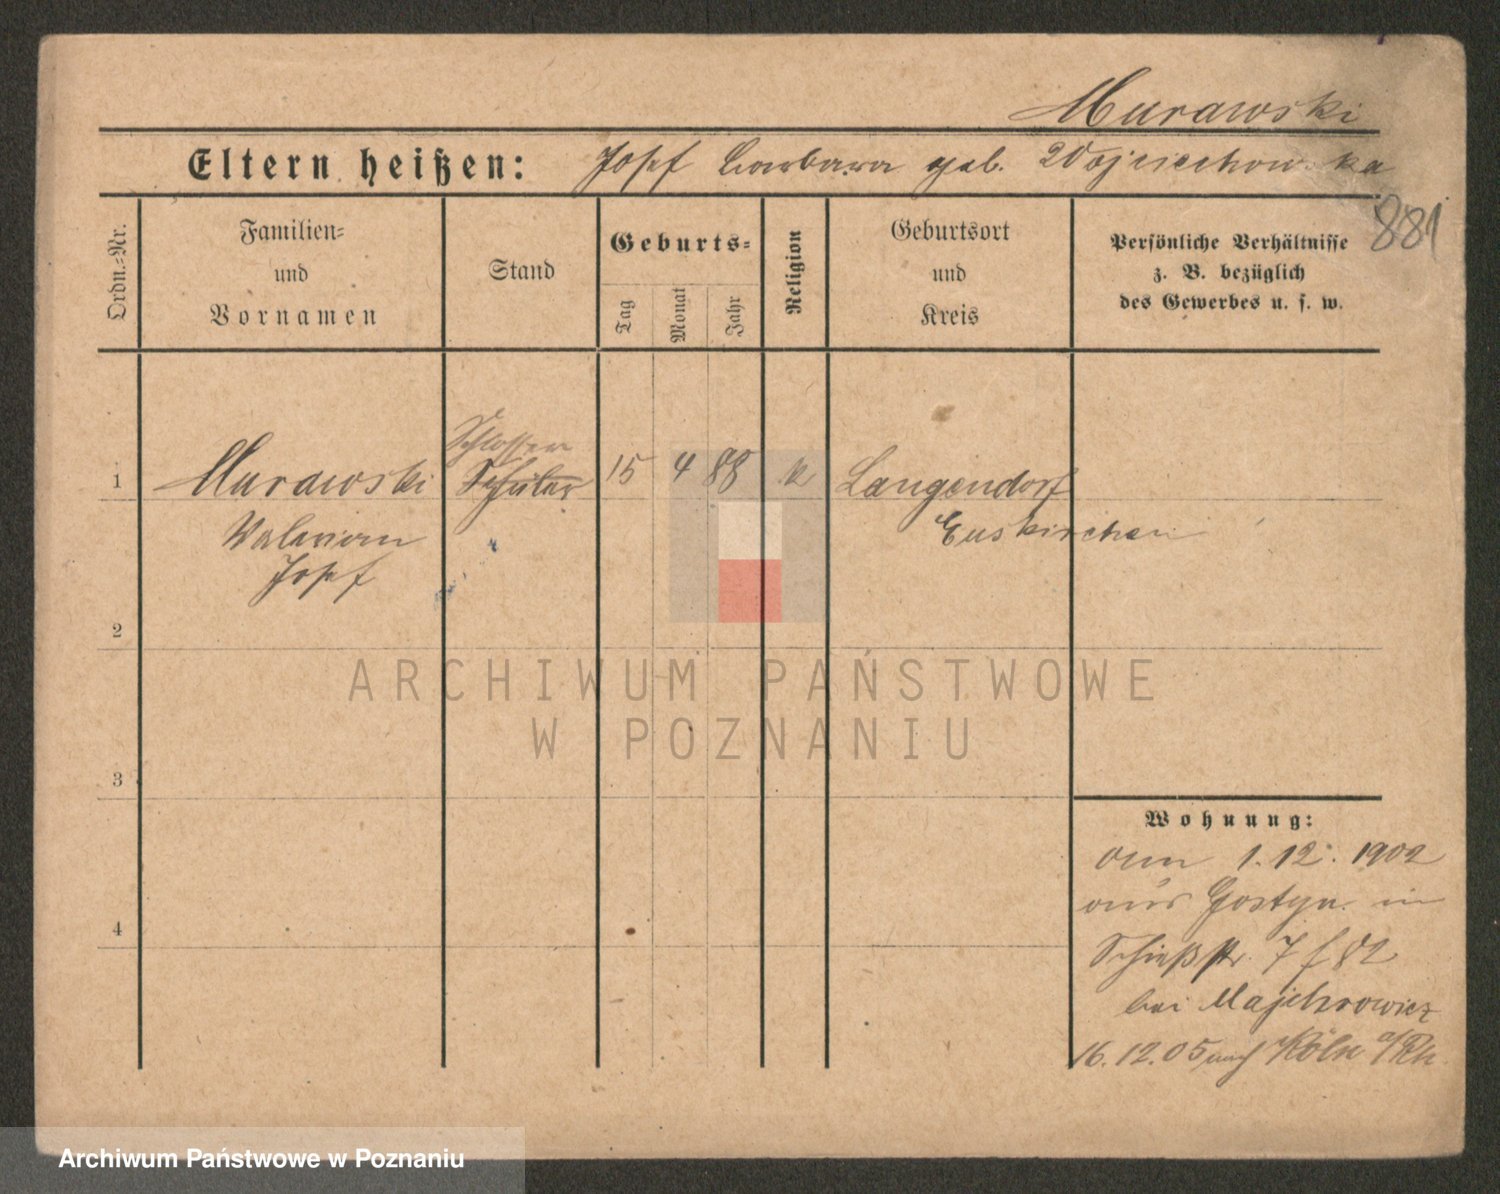 Murawski
Eltern heißen: Josef Barbara geb. Wojciechowska
881
Ordn.-Nr.
Familien-
und
Vornamen
Stand
Geburts-
Tag
Monat
Jahr
Religion
Geburtsort
und
Kreis
Persönliche Verhältnisse
z. B. bezüglich
des Gewerbes u. s. w.
Schlosser
1 Murawski Schüler 15 4 88 k Langendorf
Valerian Euskirchen
Josef
2
ARCHIWUM PAŃSTWOWE
W POZNANIU
3
Wohnung:
am 1.12. 1902
aus Gostyn in
Schießstr. 7 f 82
bei Majchrowicz
16.12.05 nach Köln a/Rh.
4
Archiwum Państwowe w Poznaniu